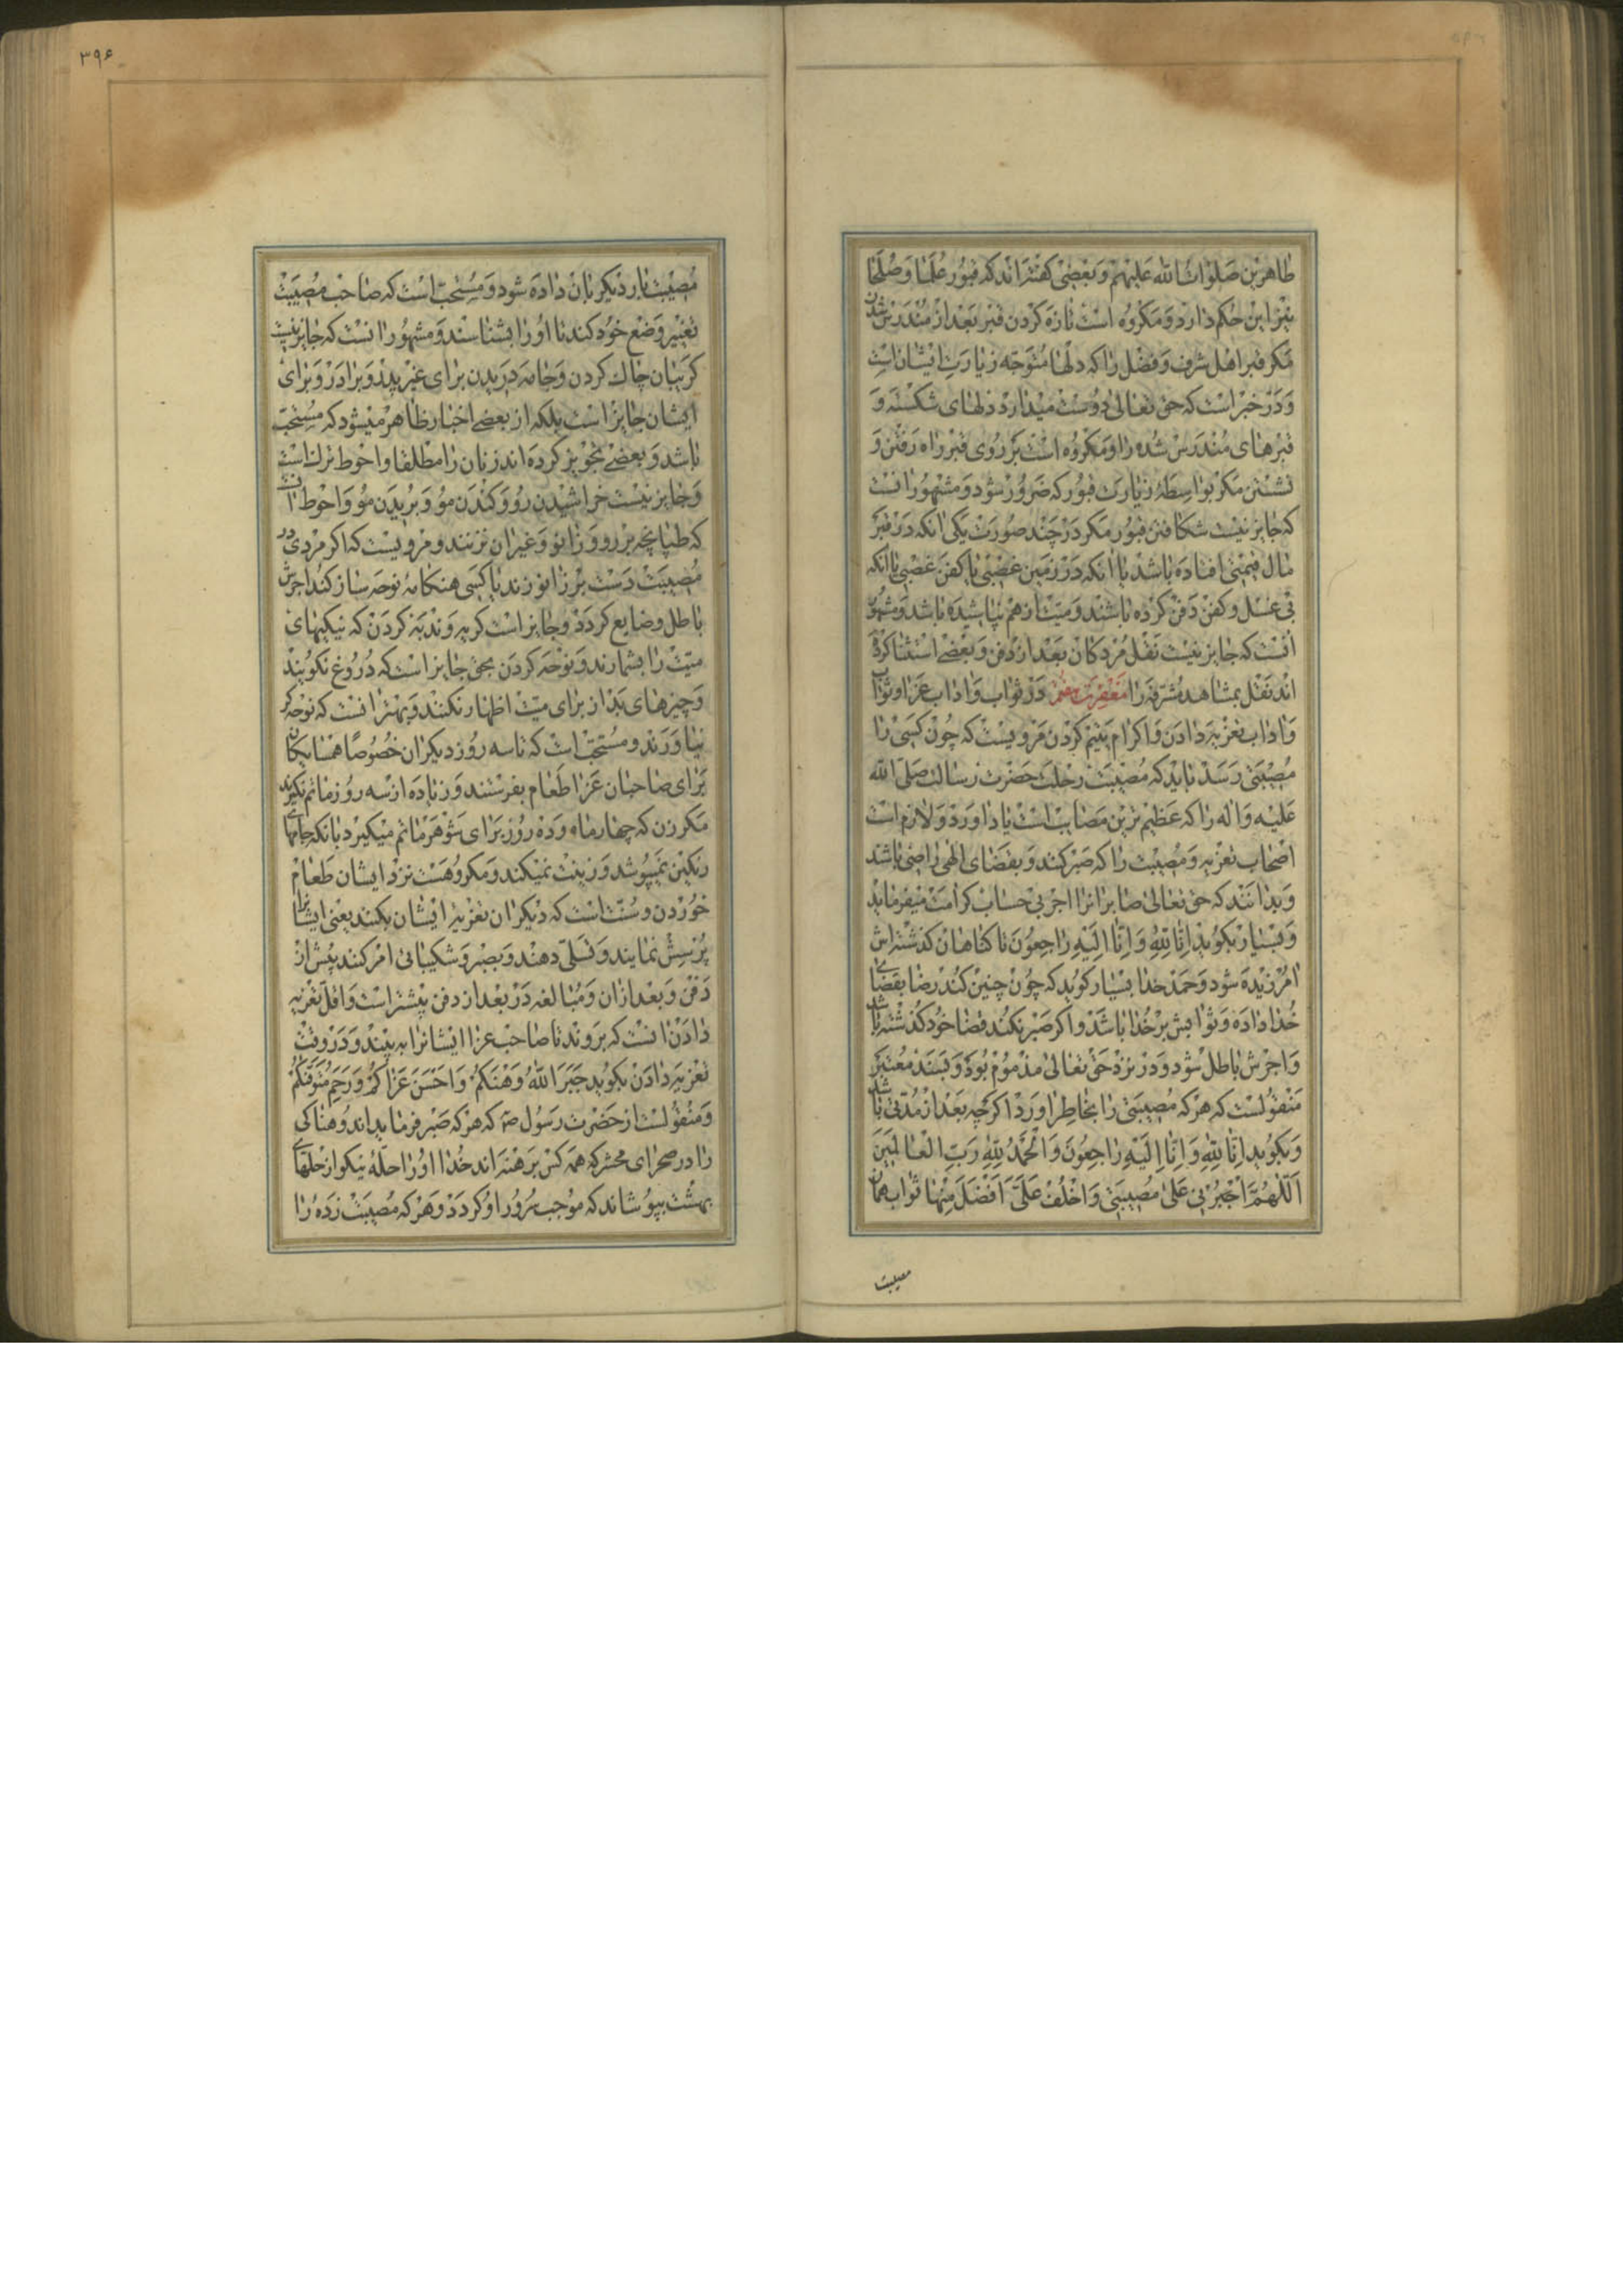 ۳۹۶
طاهرین صلوات الله علیهم و بعضی گفته‌اند که قبور علما و صلحا
نیز این حکم دارد و مکروه است تازه کردن قبر بعد از مندرس شدن
مکر قبر اهل شرف و فضل را که دلها متوجه زیارت ایشان است
و در خبر است که حق تعالی دوست میدارد دلهای شکسته و
قبرهای مندرس شده را و مکروه است بر روی قبر راه رفتن و
نشستن مکر بواسطهٔ زیارت قبور که ضرور شود و مشهور آنست
که جایز نیست شکافتن قبور مکر در چند صورت یکی آنکه در قبر
مال قیمتی افتاده باشد یا آنکه در زمین غصبی یا کفن غصبی یا آنکه
بی غسل و کفن دفن کرده باشند و میت از هم نپاشیده باشد و مشهور
آنست که جایز نیست نقل مردکان بعد از دفن و بعضی استثنا کرده
اند نقل بمشاهد مشرفه را مغفرت هفتم در ثواب و آداب عزا و ثواب
و آداب تعزیه دادن و اکرام یتیم کردن مرویست که چون کسی را
مصیبتی رسد باید که مصیبت رحلت حضرت رسالت صلی الله
علیه و آله را که عظیم ترین مصایب است یاد آورد و لازم است
اصحاب تعزیه و مصیبت را که صبر کنند و بقضای الهی راضی باشند
و بدانند که حق تعالی صابرانرا اجر بی حساب کرامت میفرماید
و بسیار بکوید اِنّا لِلّهِ وَ اِنّا اِلَیهِ راجِعُونَ تا کناهان کذشته‌اش
آمرزیده شود و حمد خدا بسیار کوید که چون چنین کند رضا بقضای
خدا داده و ثوابش بر خدا باشد و اکر صبر نکند قضا خود کذشته باشد
و اجرش باطل شود و در نزد حق تعالی مذموم بود و بسند معتبر
منقولست که هر که مصیبتی را بخاطر آورد اکرچه بعد از مدتی باشد
و بکوید اِنّا لِلّهِ وَ اِنّا اِلَیهِ راجِعُونَ وَ الحَمدُ لِلّهِ رَبِّ العالَمینَ
اَللّهُمَّ اَجِرنی عَلی مُصیبَتی وَ اخلُف عَلَیَّ اَفضَلَ مِنها ثواب همان
مصیبت
مصیبت بار دیکر بآن داده شود و مستحب است که صاحب مصیبت
تغییر وضع خود کند تا او را بشناسند و مشهور آنست که جایز نیست
کریبان چاک کردن و جامه دریدن برای غیر پدر و برادر و برای
ایشان جایز است بلکه از بعضی اخبار ظاهر میشود که مستحب
باشد و بعضی تجویز کرده اند زنان را مطلقا و احوط ترک است
و جایز نیست خراشیدن رو و کندن مو و بریدن مو و احوط آنست
که طپانچه بر رو و زانو و غیر آن نزنند و مرویست که اکر مردی در
مصیبت دست بر زانو زند یا کسی هنکامهٔ نوحه ساز کند اجرش
باطل و ضایع کردد و جایز است کریه و ندبه کردن که نیکیهای
میت را بشمارند و نوحه کردن بحق جایز است که دروغ نکویند
و چیزهای بد از برای میت اظهار نکنند و بهتر آنست که نوحه کر
نیاورند و مستحب است که تا سه روز دیکران خصوصا همسایکان
برای صاحبان عزا طعام بفرستند و زیاده از سه روز ماتم نکیرند
مکر زن که چهار ماه و ده روز برای شوهر ماتم میکیرد بآنکه جامهای
رنکین نمیپوشد و زینت نمیکند و مکروهست نزد ایشان طعام
خوردن و سنت است که دیکران تعزیهٔ ایشان بکنند یعنی ایشانرا
پرسش نمایند و تسلی دهند و بصبر و شکیبائی امر کنند پیش از
دفن و بعد از آن و مبالغه در بعد از دفن بیشتر است و اقل تعزیه
دادن آنست که بروند تا صاحب عزا ایشانرا به بیند و در وقت
تعزیه دادن بکوید جَبَرَ اللّهُ وَهنَکُم وَ اَحسَنَ عَزاکُم وَ رَحِمَ مُتَوَفّیکُم
و منقولست از حضرت رسول ص که هر که صبر فرماید اندوهناکی
را در صحرای محشر که همه کس برهنه اند خدا او را حلّهٔ نیکو از حلهای
بهشت بپوشاند که موجب سرور او کردد و هر که مصیبت زده را